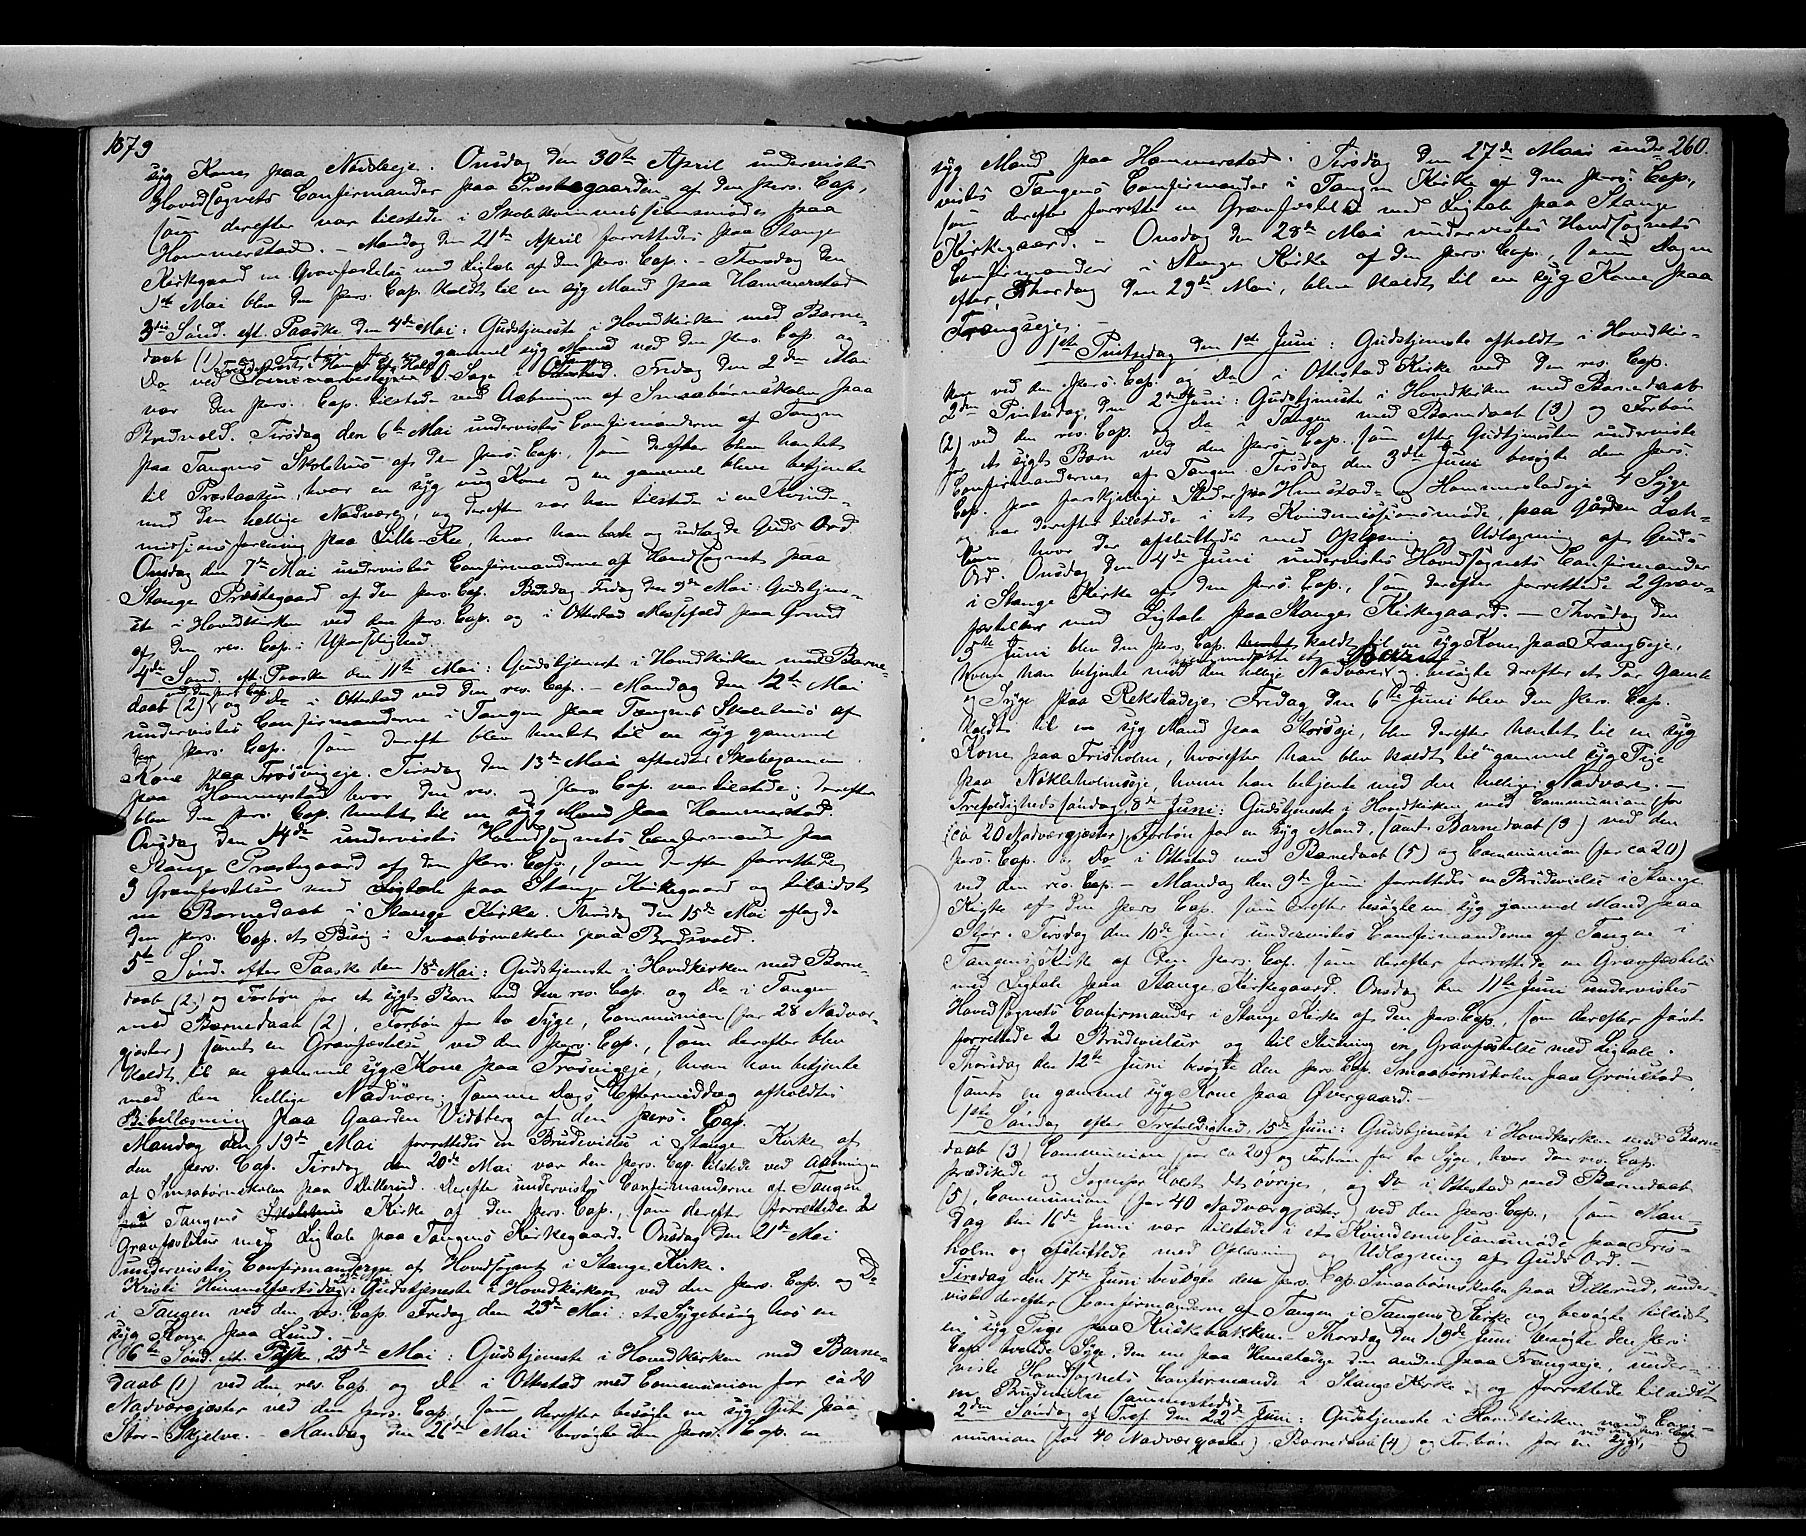 1879
syg Kone paa Nodsleje. Onsdag den 30te April undervistes
Hovedsognets Confirmander paa Præstegaarden af den pers. Cap.,
som derefter var tilstede i Skolekommissionsmøde paa
Hommerstad. - Mandag den 21de April forrettedes paa Stange
Kirkegaard en Gravfæstelse med Ligtale af den pers. Cap. - Thorsdag den
1ste Mai blev den pers. Cap. kaldt til en syg Mand paa Hammerstad
3die Sønd. eft. Paaske den 4de Mai: Gudstjeneste i Hovedkirken med Barne-
daab (1) og Forbøn for en gammel syg Mand ved den pers. Cap og
Do ved O. Sage i Tangen. Fredag den 2den Mai
var den pers. Cap. tilstede ved Aabningen af Smaabørnskolen paa
Bredvold. Tirsdag den 6te Mai undervistes Confirmanderne af Tangen
paa Tangens Skolehus af den pers. Cap., som derefter blev hentet
til Præstaasen, hvor en syg ung Kone og en gammel bleve betjente
med den hellige Nadvere, og derefter var han tilstede i en Kvinde-
missionsforening paa Lille-Re, hvor han bad og udlagde Guds Ord.
Onsdag den 7de Mai undervistes Confirmanderne af Hovedsognet paa
Stange Præstegaard af den pers. Cap. Bededag Fredag den 9de Mai: Gudstjene-
ste i Hovedkirken ved den pers. Cap. og i Ottestad Messefald paa Grund
af den res. Cap.s Upasselighed.
4de Sønd. eft. Paaske den 11te Mai: Gudstjeneste i Hovedkirken med Barne-
daab (2) ved den pers. Cap. og Do i Ottestad ved den res. Cap. - Mandag den 12te Mai
undervistes Confirmanderne i Tangen paa Tangens Skolehus af
den pers. Cap., som derefter blev hentet til en syg gammel
Kone paa Trosvigeje. Tirsdag den 13de Mai afholdtes Skoleexamen
paa Hommerstad hvor den res. og pers. Cap. var tilstede; derefter
blev den pers. Cap. hentet til en syg Mand paa Hammerstad.
Onsdag den 14de undervistes Hovedsognets Confirmander paa
Stange Præstegaard af den pers. Cap., som derefter forrettede
3 Gravfæstelser med Ligtale paa Stange Kirkegaard og tilsidst
en Barnedaab i Stange Kirke. Thorsdag den 15de Mai aflagde
den pers. Cap. et Besøg i Smaabørnskolen paa Bredsvold.
5te Sønd. efter Paaske den 18de Mai: Gudstjeneste i Hovedkirken med Barne-
daab (2) og Forbøn for et sygt Barn ved den res. Cap. og Do i Tangen
med Barnedaab (2), Forbøn for to Syge, Communion (for 28 Nadver-
gjester) samt en Gravfæstelse ved den pers. Cap., som derefter blev
kaldt til en gammel syg Kone paa Trosvigeje, hvem han betjente
med den hellige Nadvere; samme Dags Eftermiddag afholdtes
Bibellæsning paa Gaarden Vidsberg af den pers. Cap.
Mandag den 19de Mai forrettedes en Brudevielse i Stange Kirke af
den pers. Cap. Tirsdag den 20de Mai var den pers. Cap. tilstede ved Aabningen
af Smaabørnskolen paa Dillerud. Derefter undervistes Confirmanderne af Tangen
i Tangens Kirke af den pers. Cap., som derefter forrettede 2
Gravfæstelser med Ligtale paa Tangens Kirkegaard. Onsdag den 21de Mai
undervistes Confirmanderne af Hovedsognet i Stange Kirke.
Kristi Himmelfartsdag: Gudstjeneste i Hovedkirken ved den pers. Cap. og Do
i Tangen ved den res. Cap. Fredag den 23de Mai: et Sygebesøg hos en
syg Kone paa Lund. -
6te Sønd. eft. Paaske, 25de Mai: Gudstjeneste i Hovedkirken med Barne-
daab (1) ved den res. Cap. og Do i Ottestad med Communion for ca 20
Nadvergjester ved den pers. Cap. som derefter besøgte en syg paa
Stor-Skjelve. - Mandag den 26de Mai besøgte den pers. Cap. en
260.
syg Mand paa Hammerstad. Tirsdag den 27de Mai under-
vistes Tangens Confirmander i Tangen Kirke af den pers. Cap.,
som derefter forrettede en Gravfæstelse med Ligtale paa Stange
Kirkegaard. - Onsdag den 28de Mai undervistes Hovedsognets
Confirmander i Stange Kirke af den pers. Cap., som Dagen
efter, Thorsdag den 29de Mai, blev kaldt til en syg Kone paa
Frangseje.
1ste Pintsedag den 1ste Juni: Gudstjeneste afholdt i Hovedkir-
ken ved den pers. Cap. og Do i Ottestad Kirke ved den res. Cap.
2den Pintsedag, den 2den Juni: Gudstjeneste i Hovedkirken med Barnedaab
(2) ved den res. Cap. og Do i Tangen med Barnedaab (3) og Forbøn
for et sygt Barn ved den pers. Cap. som efter Gudstjenesten underviste
Confirmanderne af Tangen. Tirsdag den 3die Juni besøgte den pers.
Cap. paa forskjellige Steder paa Hemstad- og Hommerstadeje 4 Syge
og var derefter tilstede i et Kvindemissionsmøde, paa Gaarden
hvor der afsluttedes med Oplæsning og Udlægning af Guds
Ord. Onsdag den 4de Juni undervistes Hovedsognets Confirmander
i Stange Kirke af den pers. Cap., som derefter forrettede 2 Grav-
fæstelser med Ligtale paa Stanges Kirkegaard. - Thorsdag den
5te Juni blev den pers. Cap. kaldt til en syg Kone paa Frangseje,
hvem han betjente med den hellige Nadvere, besøgte derefter et Par Gamle
og Syge paa Rekstadeje. Fredag den 6te Juni blev den pers. Cap.
kaldt til en syg Mand paa Storseje, blev derefter hentet til en syg
Kone paa Frisholm, hvorefter han blev kaldt til gammel syg Pige
paa Nøkleholmseje, hvem han betjente med den hellige Nadvere. -
Trefoldighedssøndag, 8de Juni: Gudstjeneste i Hovedkirken med Communion (for
ca 20 Nadvergjester), Forbøn for en syg Mand, samt Barnedaab (3) ved den
pers. Cap. og Do i Ottestad med Barnedaab (5) og Communion (for ca 20)
ved den res. Cap. - Mandag den 9de Juni forrettedes en Brudevielse i Stange
Kirke af den pers. Cap. som derefter besøgte en syg gammel Mand paa
Stor. Tirsdag den 10de Juni undervistes Confirmanderne af Tangen i
Tangens Kirke af den pers. Cap. som derefter forrettede en Gravfæstelse
med Ligtale paa Stange Kirkegaard. Onsdag den 11te Juni undervistes
Hovedsognets Confirmander i Stange Kirke af den pers. Cap., som derefter først
forrettede 2 Brudevielser og til Slutning en Gravfæstelse med Ligtale.
Thorsdag den 12te Juni besøgte den pers. Cap. Smaabørnskolen paa Grønstad
samt en gammel syg Kone paa Øvergaard. -
1ste Søndag efter Trefoldighed, 15de Juni: Gudstjeneste i Hovedkirken med Barne-
daab (3) Communion (for ca 20) og Forbøn for to Syge, hvor den res. Cap.
prædikede og Sognepr Holst det øvrige, og Do i Ottestad med Barnedaab
(5), Communion (for 40 Nadvergjester) ved den pers. Cap., som Man-
dag den 16de Juni var tilstede i et Kvindemissionsmøde paa Fris-
holm og afsluttede med Oplæsning og Udlægning af Guds Ord. -
Tirsdag den 17de Juni besøgte den pers. Cap. Smaabørnskolen paa Dillerud, under-
viste derefter Confirmanderne af Tangen i Tangens Kirke og besøgte tilsidst
en syg Pige paa Kirkebakken. - Thorsdag den 19de Juni besøgte den pers.
Cap. tvende Syge, den ene paa Hemstadeje den anden paa Frangseje, under-
viste Hovedsognets Confirmander i Stange Kirke, og forrettede tilsidst
en Brudevielse sammesteds. -
2den Søndag ef Tref. den 22de Juni: Gudstjeneste i Hovedkirken med Com-
munion for 40 Nadvergjester, Barnedaab (4) og Forbøn for en Syg, ved den pers. Cap. og